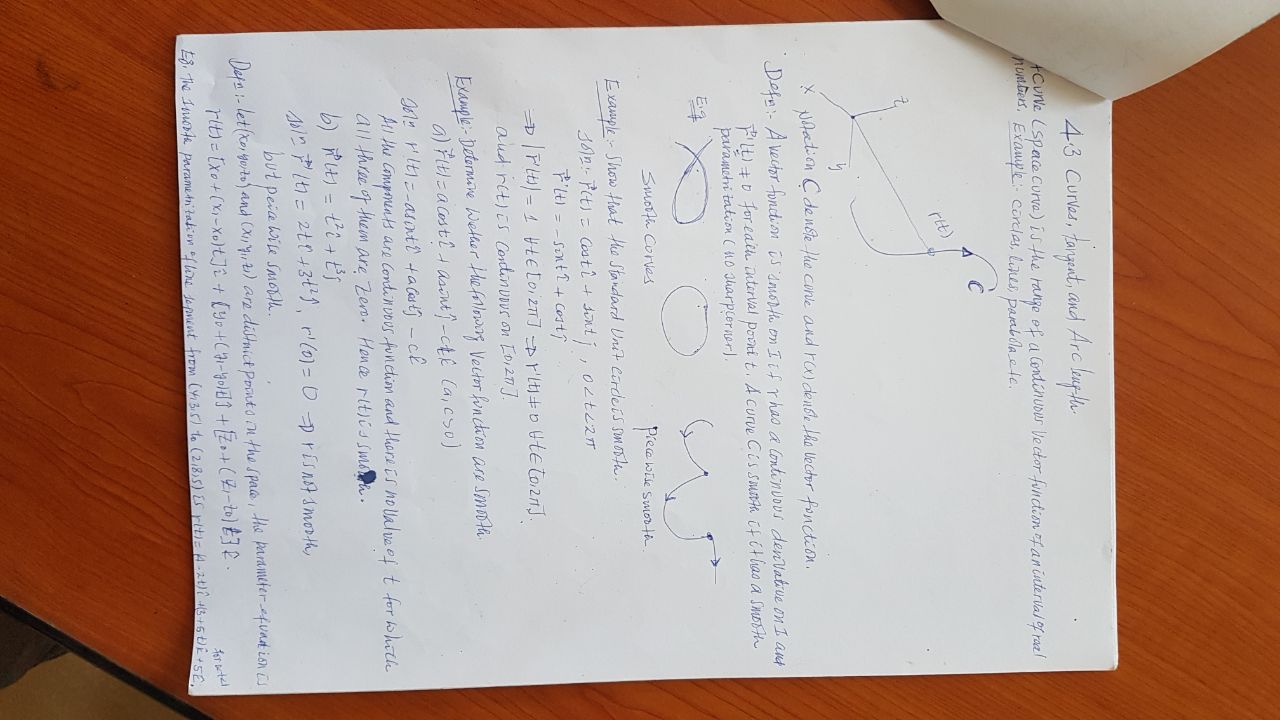 4.3 Curves, tangent, and Arc length
+ Curve (space curve) is the range of a continuous vector function of an interval of real
numbers. Example:- circles, lines, parabola etc.
z
r(t)
C
y
x
Notation C denote the curve and r(t) denote the vector function.
Defn:- A vector function is smooth on I if r has a continuous derivative on I and
r'(t) ≠ 0 for each interval point t. A curve C is smooth if it has a smooth
parametrization (no sharp corner)
E.g
Smooth curves
piecewise smooth
Example:- Show that the standard unit circle is smooth.
soln:- r(t) = cost î + sint ĵ , 0<t<2π
r'(t) = -sint î + cost ĵ
⇒ |r'(t)| = 1 ∀t∈[0,2π] ⇒ r'(t) ≠ 0 ∀t∈[0,2π]
and r'(t) is continuous on [0,2π]
Example:- Determine whether the following vector function are smooth.
a) r(t) = a cost î + a sint ĵ - ct k̂ (a,c>0)
soln r'(t) = -a sint î + a cost ĵ - c k̂
All the components are continuous function and there is no value of t for which
all three of them are zero. Hence r(t) is smooth.
b) r(t) = t²î + t³ĵ
soln, r'(t) = 2tî + 3t²ĵ , r'(0) = 0 ⇒ r is not smooth,
but peice wise smooth.
Defn:- let (x0,y0,z0) and (x1,y1,z1) are distict points on the space, the parameter equation is
r(t) = [x0 + (x1-x0)t]î + [y0 + (y1-y0)t]ĵ + [z0 + (z1-z0)t]k̂.
Eg. The smooth parametrization of line segment from (4,3,5) to (2,8,5) is r(t) = (4-2t)î + (3+5t)k̂ + 5k̂,